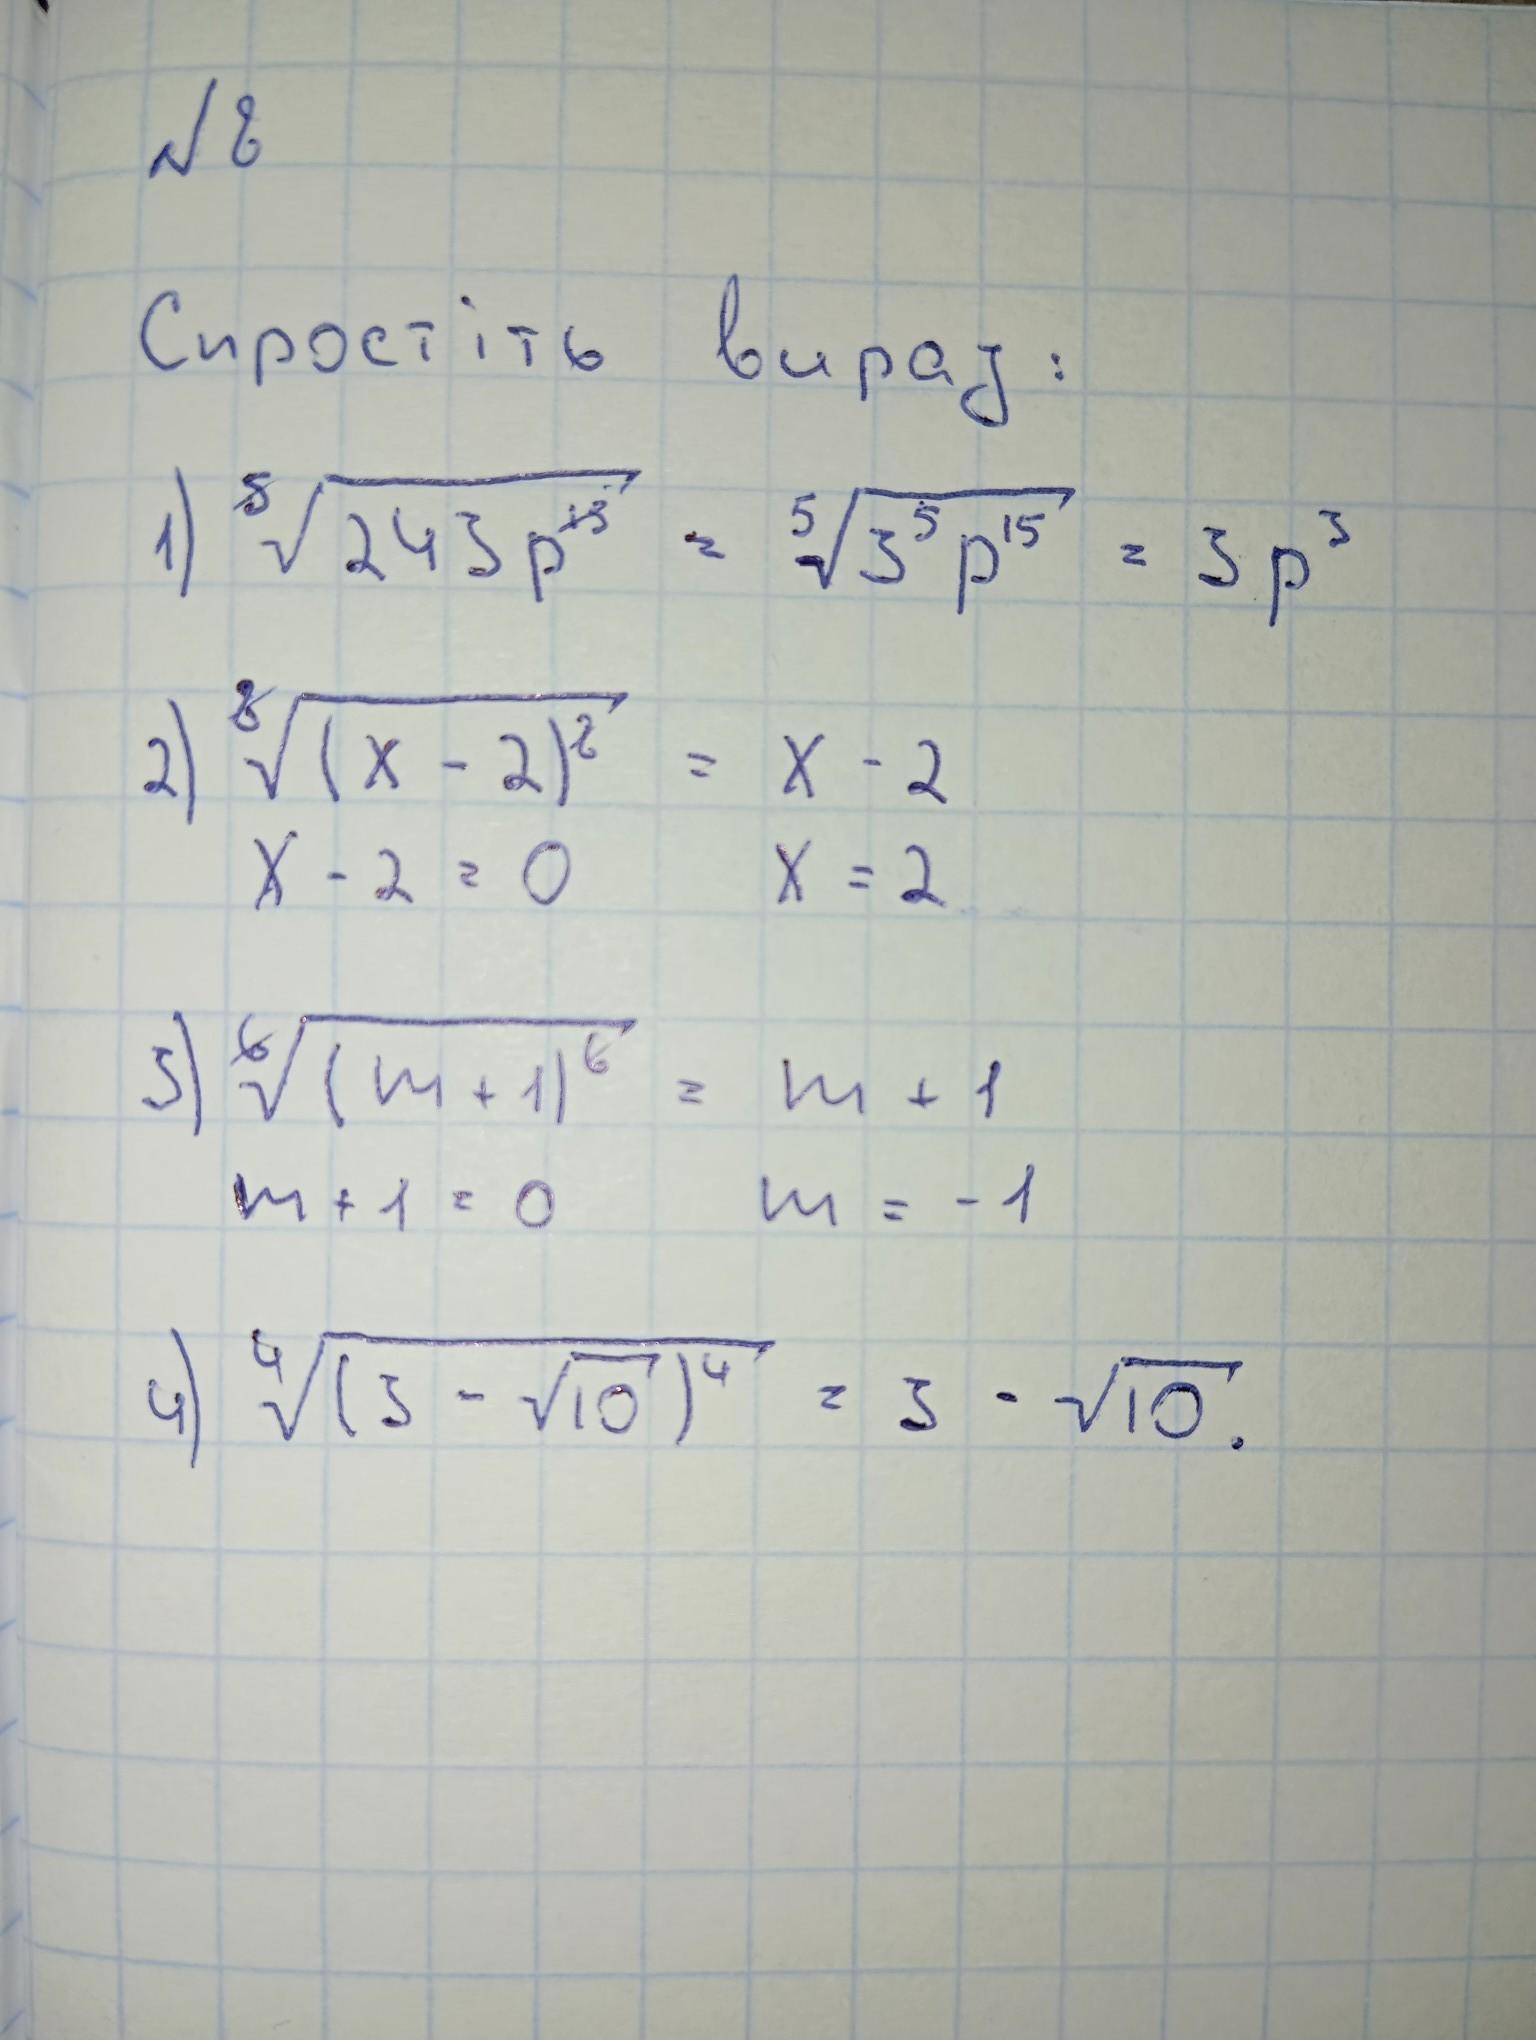 № 8
Спростіть вираз:
1) ⁵√(243p¹⁵) = ⁵√(3⁵p¹⁵) = 3p³
2) ⁸√((x - 2)⁸) = x - 2
x - 2 = 0 x = 2
3) ⁶√((m + 1)⁶) = m + 1
m + 1 = 0 m = -1
4) ⁴√((3 - √10)⁴) = 3 - √10.